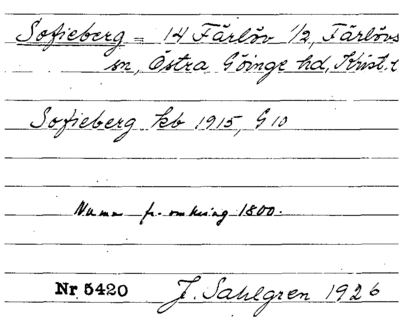 Sofieberg = 14 Färlöv 1/2, Färlövs
sn, Östra Göinge hd, Krist. l
Sofieberg kb 1915, G 10
Namn fr. omkring 1800.
Nr 5420 J. Sahlgren 1926